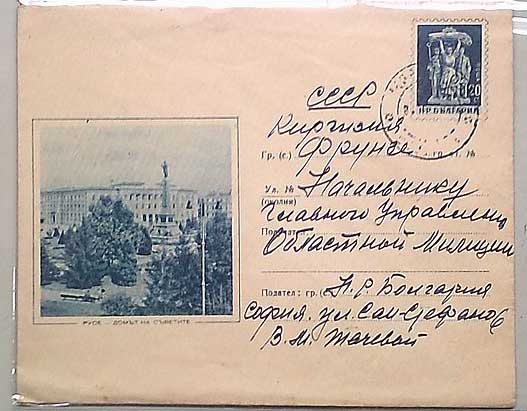 НР БЪЛГАРИЯ 1.20
СССР
Киргизия
Гр. (с.) Фрунзе
Ул. № Начальнику
(околия)
Главного Управления
Областной Милиции
Подател: гр. (с.) Н.Р. Болгария
София. ул. Сан-Стефано 6
В. М. Тачевой
РУСЕ - ДОМЪТ НА СЪВЕТИТЕ